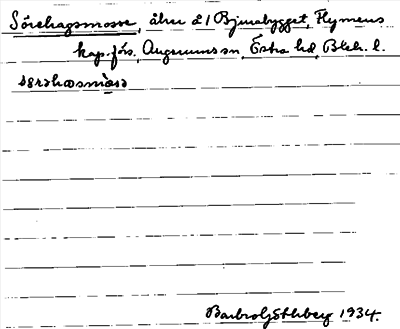 Sörehagsmosse, åker å 1 Bjurabygget, Flymens
kap. förs., Augerums sn, Östra hd, Blek. l.
sörahasmåsa
Barbro Göthberg 1934.